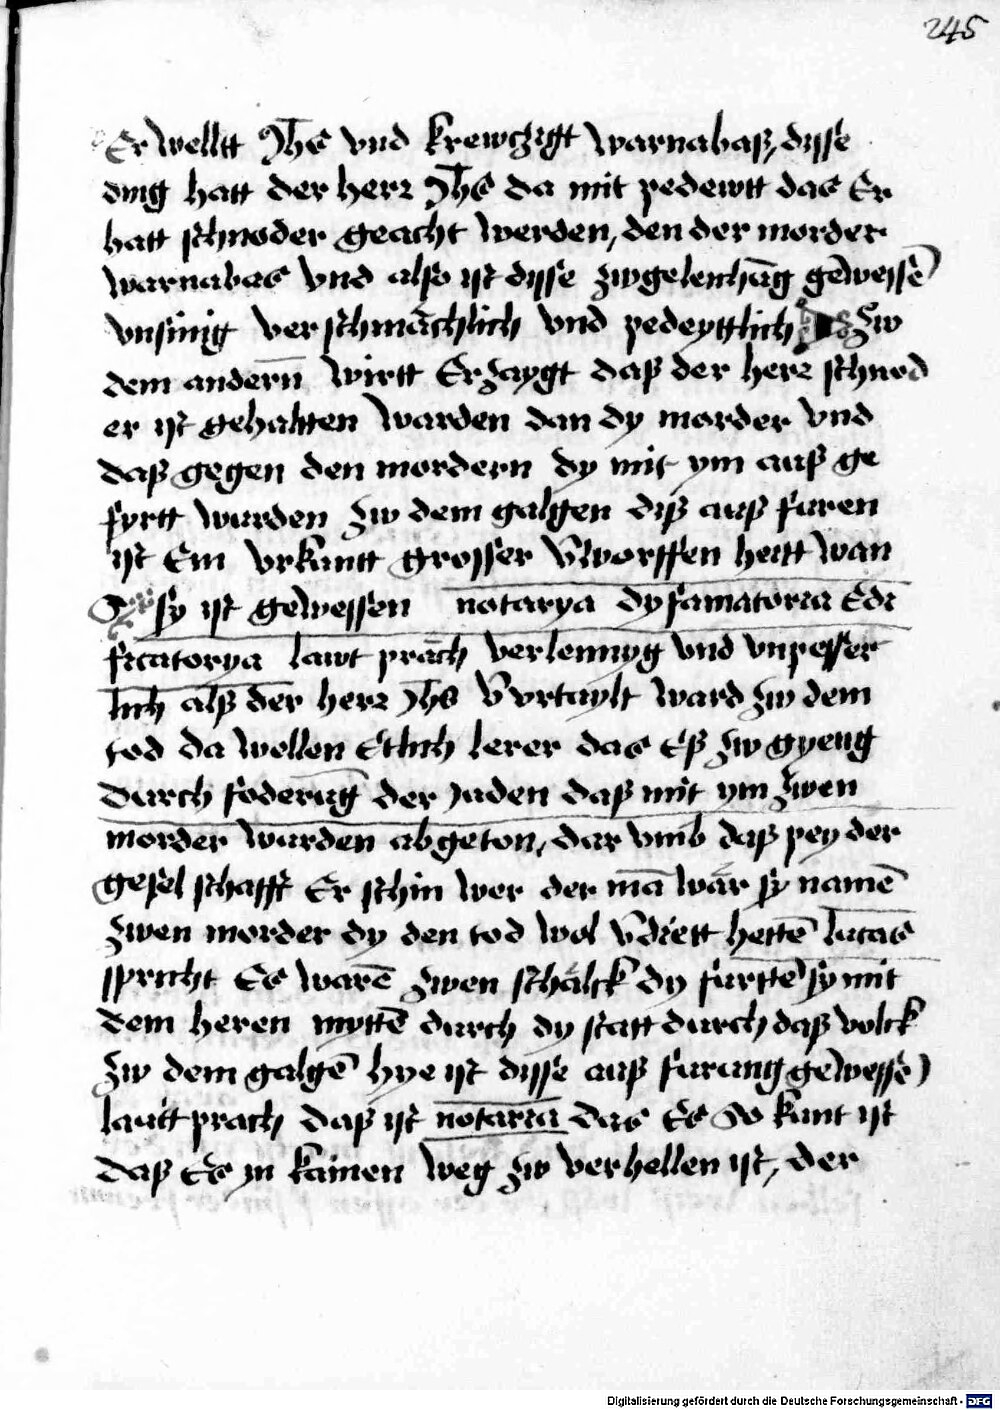 245
Er welltt Jhs vnd krewczigt warnabaß, dysse
ding hatt der herr Jhs da mit pedewtt das Er
hatt schnoder geacht werden, den der morder
warnabas vnd also ist dysse zwgelenchāg gewessē
vnsinig verschmächlich vnd pedeyttlich Zw
dem andern̄ wirtt Erzaygt daß der herr schnod
er ist gehaltten warden dan dy morder vnd
daß gegen den mordern dy mit ym auß ge
fyrtt wurden zw dem galgen diß auß furen
ist Ein vrkantt grosser v̄worffen heitt wan
Sy ist gewessen notarya dyfamatoria Edi
ficatorya lawt präch verlennyg vnd vnpesser
lich alß der herr Jhs v̄vrtaylt ward zw dem
tod da wellen Etlich lerer das Eß zw gyeng
durch foderūg der Juden daß mit ym zwen
morder wurden abgeton, dar vmb daß pey der
gesel schafft Er schin wer der mā wär sy namē
zwen morder dy den tod wol v̄diett hettē lucas
spricht Es warē zwen schälck dy furttē sy mit
dem heren myttē durch dy statt durch daß volck
zw dem galgē hye ist dysse auß furung gewessē
lautt prach daß ist notaria das Es so kunt ist
daß Es in kainen weg zw verhellen ist, der
Digitalisierung gefördert durch die Deutsche Forschungsgemeinschaft - DFG